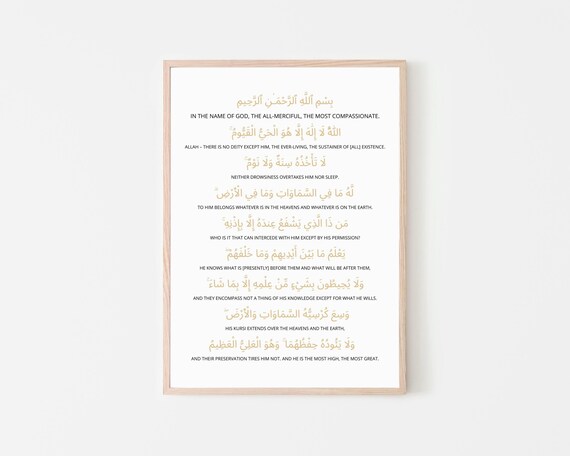 بِسْمِ ٱللَّهِ ٱلرَّحْمَـٰنِ ٱلرَّحِيمِ
IN THE NAME OF GOD, THE ALL-MERCIFUL, THE MOST COMPASSIONATE.
اللَّهُ لَا إِلَٰهَ إِلَّا هُوَ الْحَيُّ الْقَيُّومُ ۚ
ALLAH – THERE IS NO DEITY EXCEPT HIM, THE EVER-LIVING, THE SUSTAINER OF [ALL] EXISTENCE.
لَا تَأْخُذُهُ سِنَةٌ وَلَا نَوْمٌ ۚ
NEITHER DROWSINESS OVERTAKES HIM NOR SLEEP.
لَّهُ مَا فِي السَّمَاوَاتِ وَمَا فِي الْأَرْضِ ۗ
TO HIM BELONGS WHATEVER IS IN THE HEAVENS AND WHATEVER IS ON THE EARTH.
مَن ذَا الَّذِي يَشْفَعُ عِندَهُ إِلَّا بِإِذْنِهِ ۚ
WHO IS IT THAT CAN INTERCEDE WITH HIM EXCEPT BY HIS PERMISSION?
يَعْلَمُ مَا بَيْنَ أَيْدِيهِمْ وَمَا خَلْفَهُمْ ۖ
HE KNOWS WHAT IS [PRESENTLY] BEFORE THEM AND WHAT WILL BE AFTER THEM,
وَلَا يُحِيطُونَ بِشَيْءٍ مِّنْ عِلْمِهِ إِلَّا بِمَا شَاءَ ۚ
AND THEY ENCOMPASS NOT A THING OF HIS KNOWLEDGE EXCEPT FOR WHAT HE WILLS.
وَسِعَ كُرْسِيُّهُ السَّمَاوَاتِ وَالْأَرْضَ ۖ
HIS KURSI EXTENDS OVER THE HEAVENS AND THE EARTH,
وَلَا يَئُودُهُ حِفْظُهُمَا ۚ وَهُوَ الْعَلِيُّ الْعَظِيمُ
AND THEIR PRESERVATION TIRES HIM NOT. AND HE IS THE MOST HIGH, THE MOST GREAT.